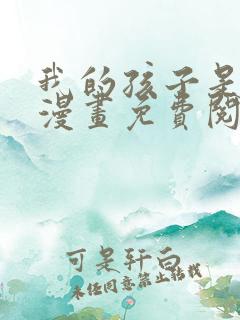 我的孩子是
漫畫免費閱
可是轩白
未经同意禁止转载